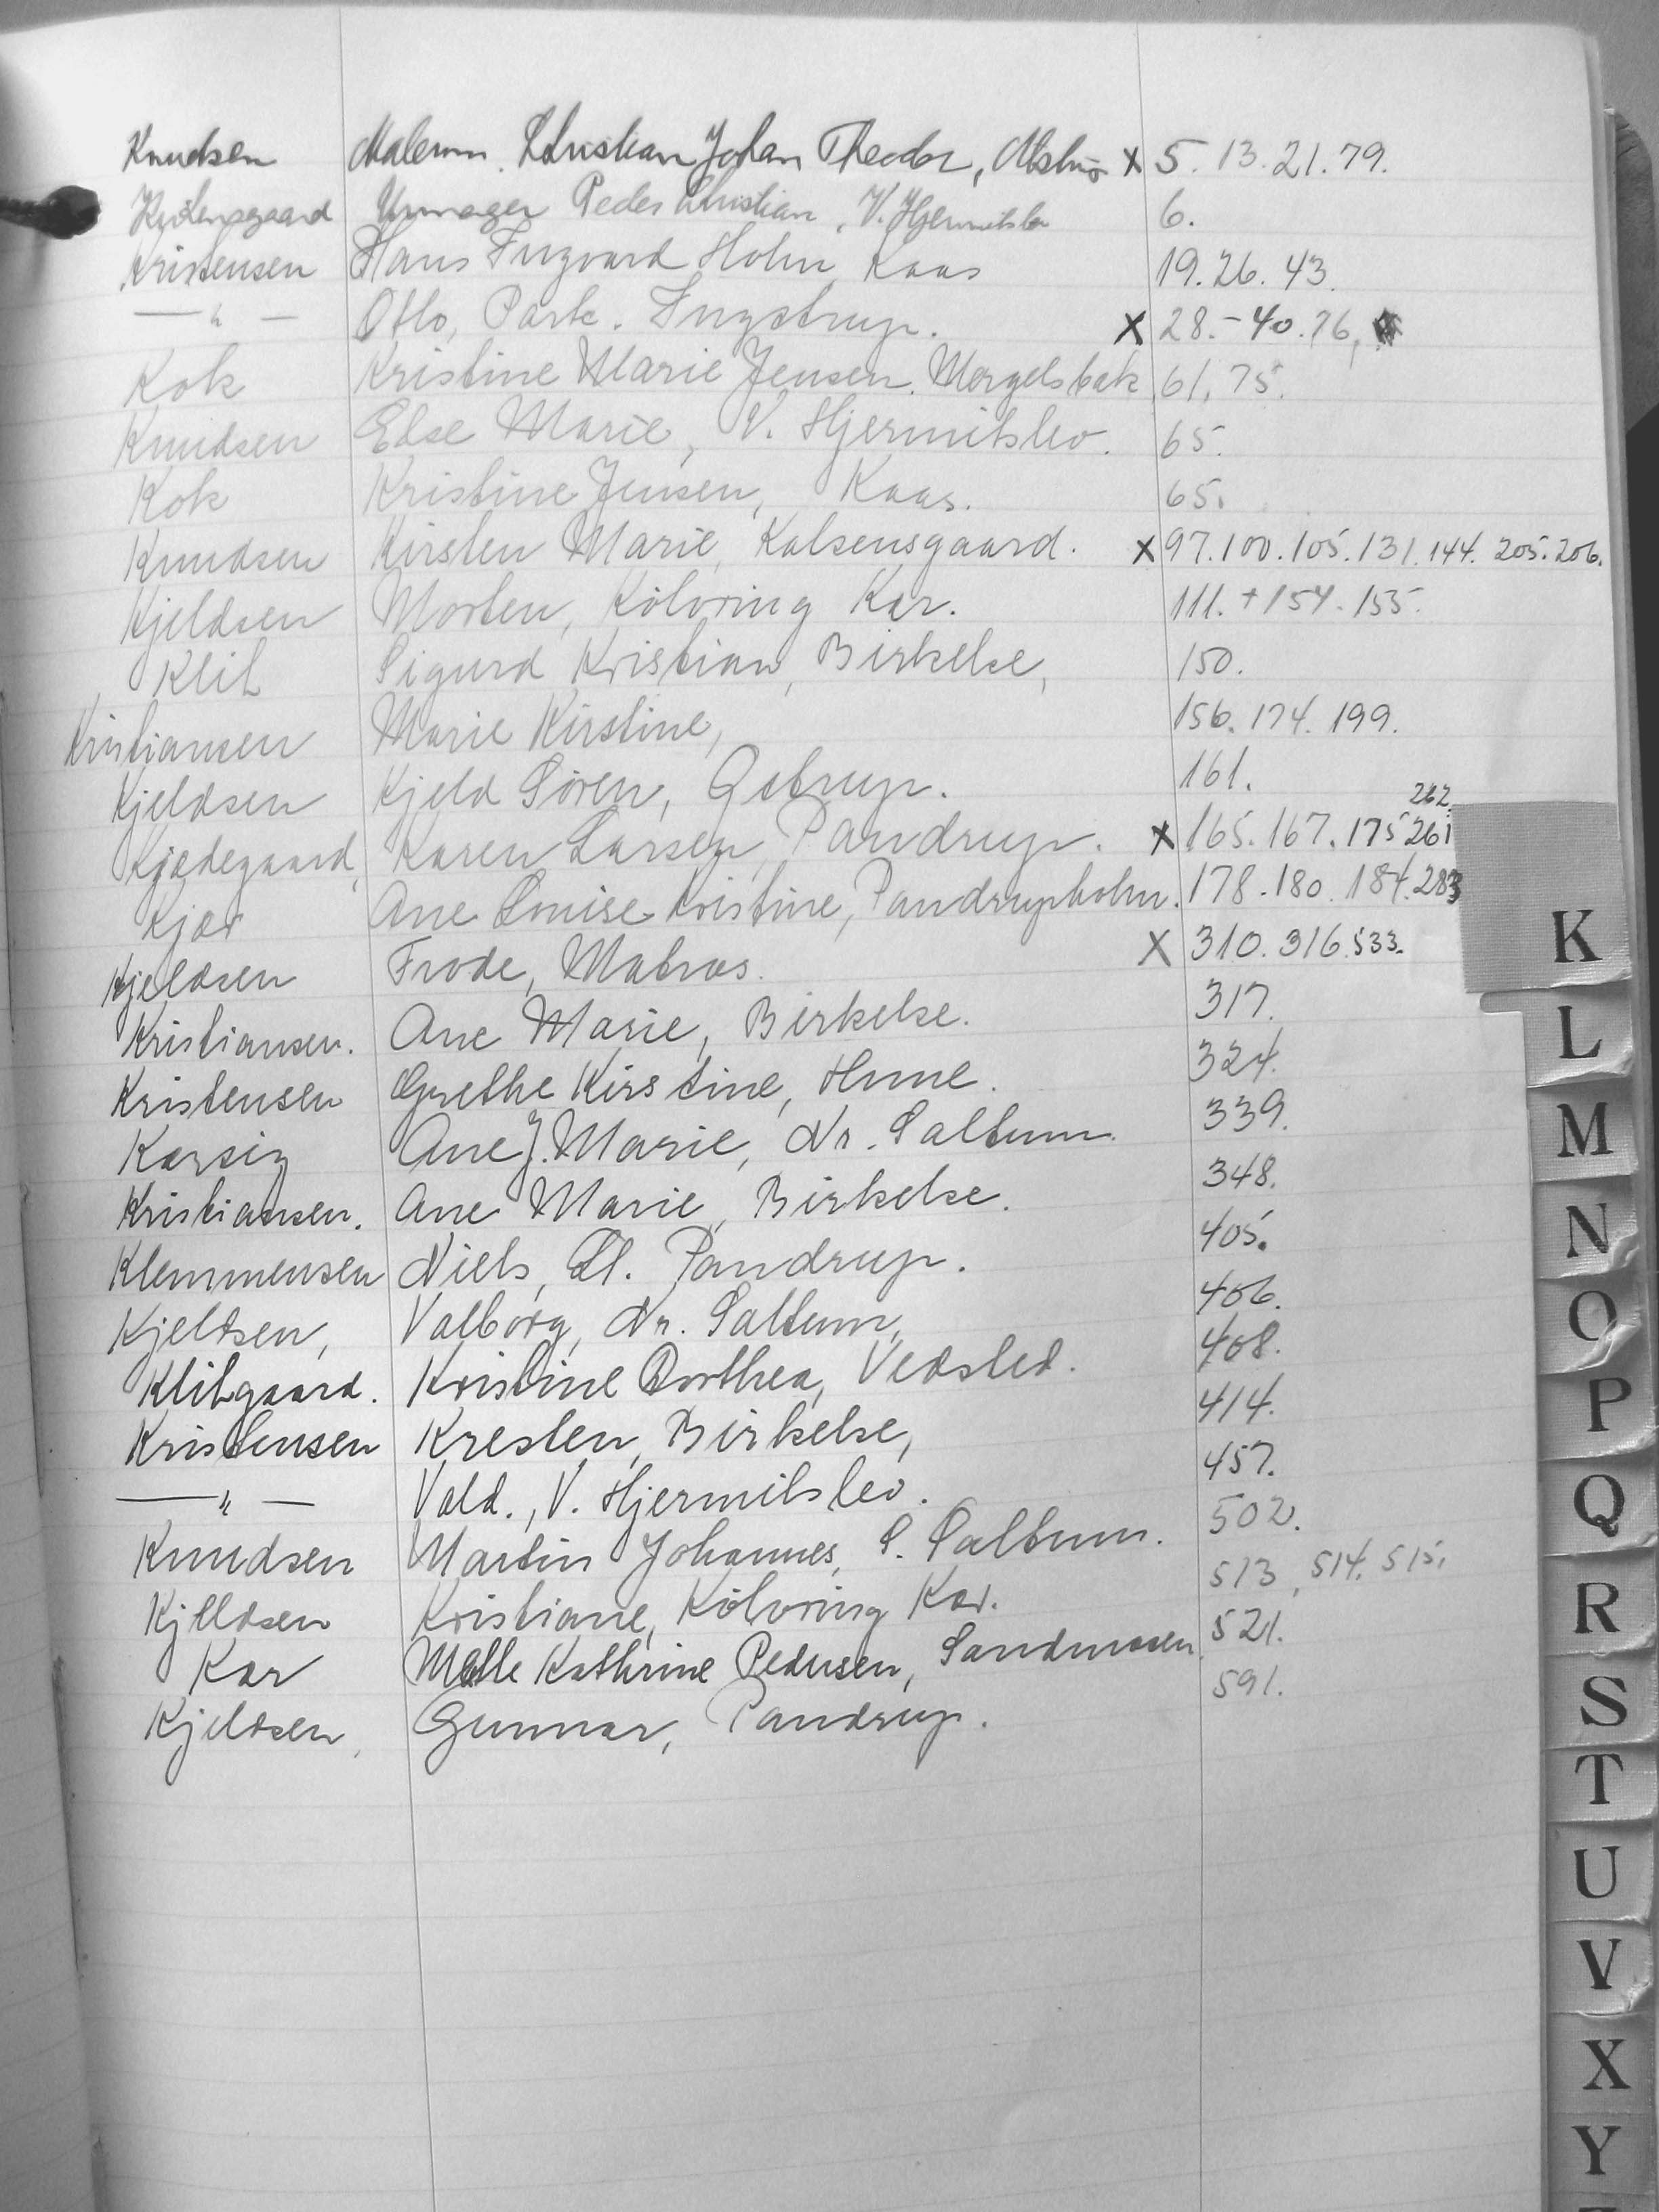 Knudsen Malerm. Christian Johan Theodor, X 5. 13. 21. 79.
Urmager Peder Christian, V. Hjermitslev 6.
Kristensen Hans Ingvard Holm, Kaas 19. 26. 43.
—"— Otto, Park. Ingstrup. X 28.-40. 76,
Kok Kristine Marie Jensen. Mergelsbæk 61, 75.
Knudsen Else Marie, V. Hjermitslev. 65.
Kok Kristine Jensen, Kaas. 65.
Knudsen Kirsten Marie, Kalsensgaard. X 97. 100. 105. 131. 144. 205. 206.
Kjeldsen Morten, Kölvring Kær. 111. + 154. 155.
Klit Sigurd Kristian, Birkelse, 150.
Kristiansen Marie Kirstine, 156. 174. 199.
Kjeldsen Kjeld Sören, Gøtrup. 161.
262.
Kjædegaard, Karen Larsen, Pandrup. X 165. 167. 175 261
Kjær Ane Louise Kristine, Pandrupholm. 178. 180. 184. 283
Kjeldsen Frode, Matros. X 310. 316. 533.
Kristiansen. Ane Marie, Birkelse. 317.
Kristensen Grethe Kirstine, Hune. 324.
Karsig Ane J. Marie, Nr. Saltum. 339.
Kristiansen. Ane Marie, Birkelse. 348.
Klemmensen Niels, Gl. Pandrup. 405.
Kjeldsen, Valborg, Nr. Saltum, 406.
Klitgaard. Kristine Dorthea, Vedsted. 408.
Kristensen Kresten, Birkelse, 414.
—"— Vald., V. Hjermitslev. 457.
Knudsen Martin Johannes, S. Saltum. 502.
Kjeldsen Kristiane, Kölvring Kær. 513, 514. 515.
Kær Mette Kathrine Pedersen, Sandmosen 521.
Kjeldsen, Gunnar, Pandrup. 591.
K
L
M
N
O
P
Q
R
S
T
U
V
X
Y